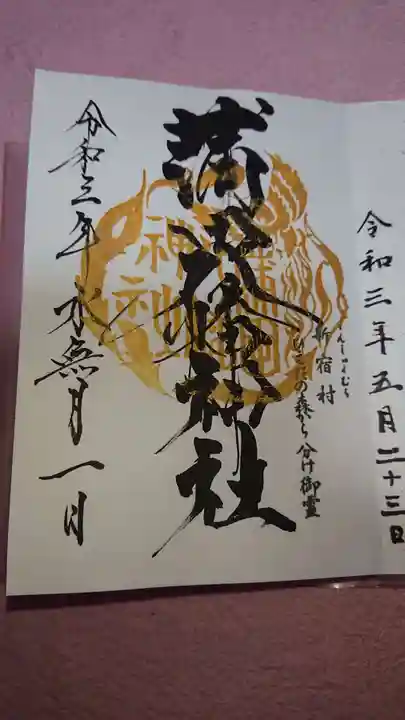 令和三年五月二十三日
しんしゅくむら
新宿村
ひえだの森から分け御霊
蒲田稲荷神社
神社
令和三年水無月一日